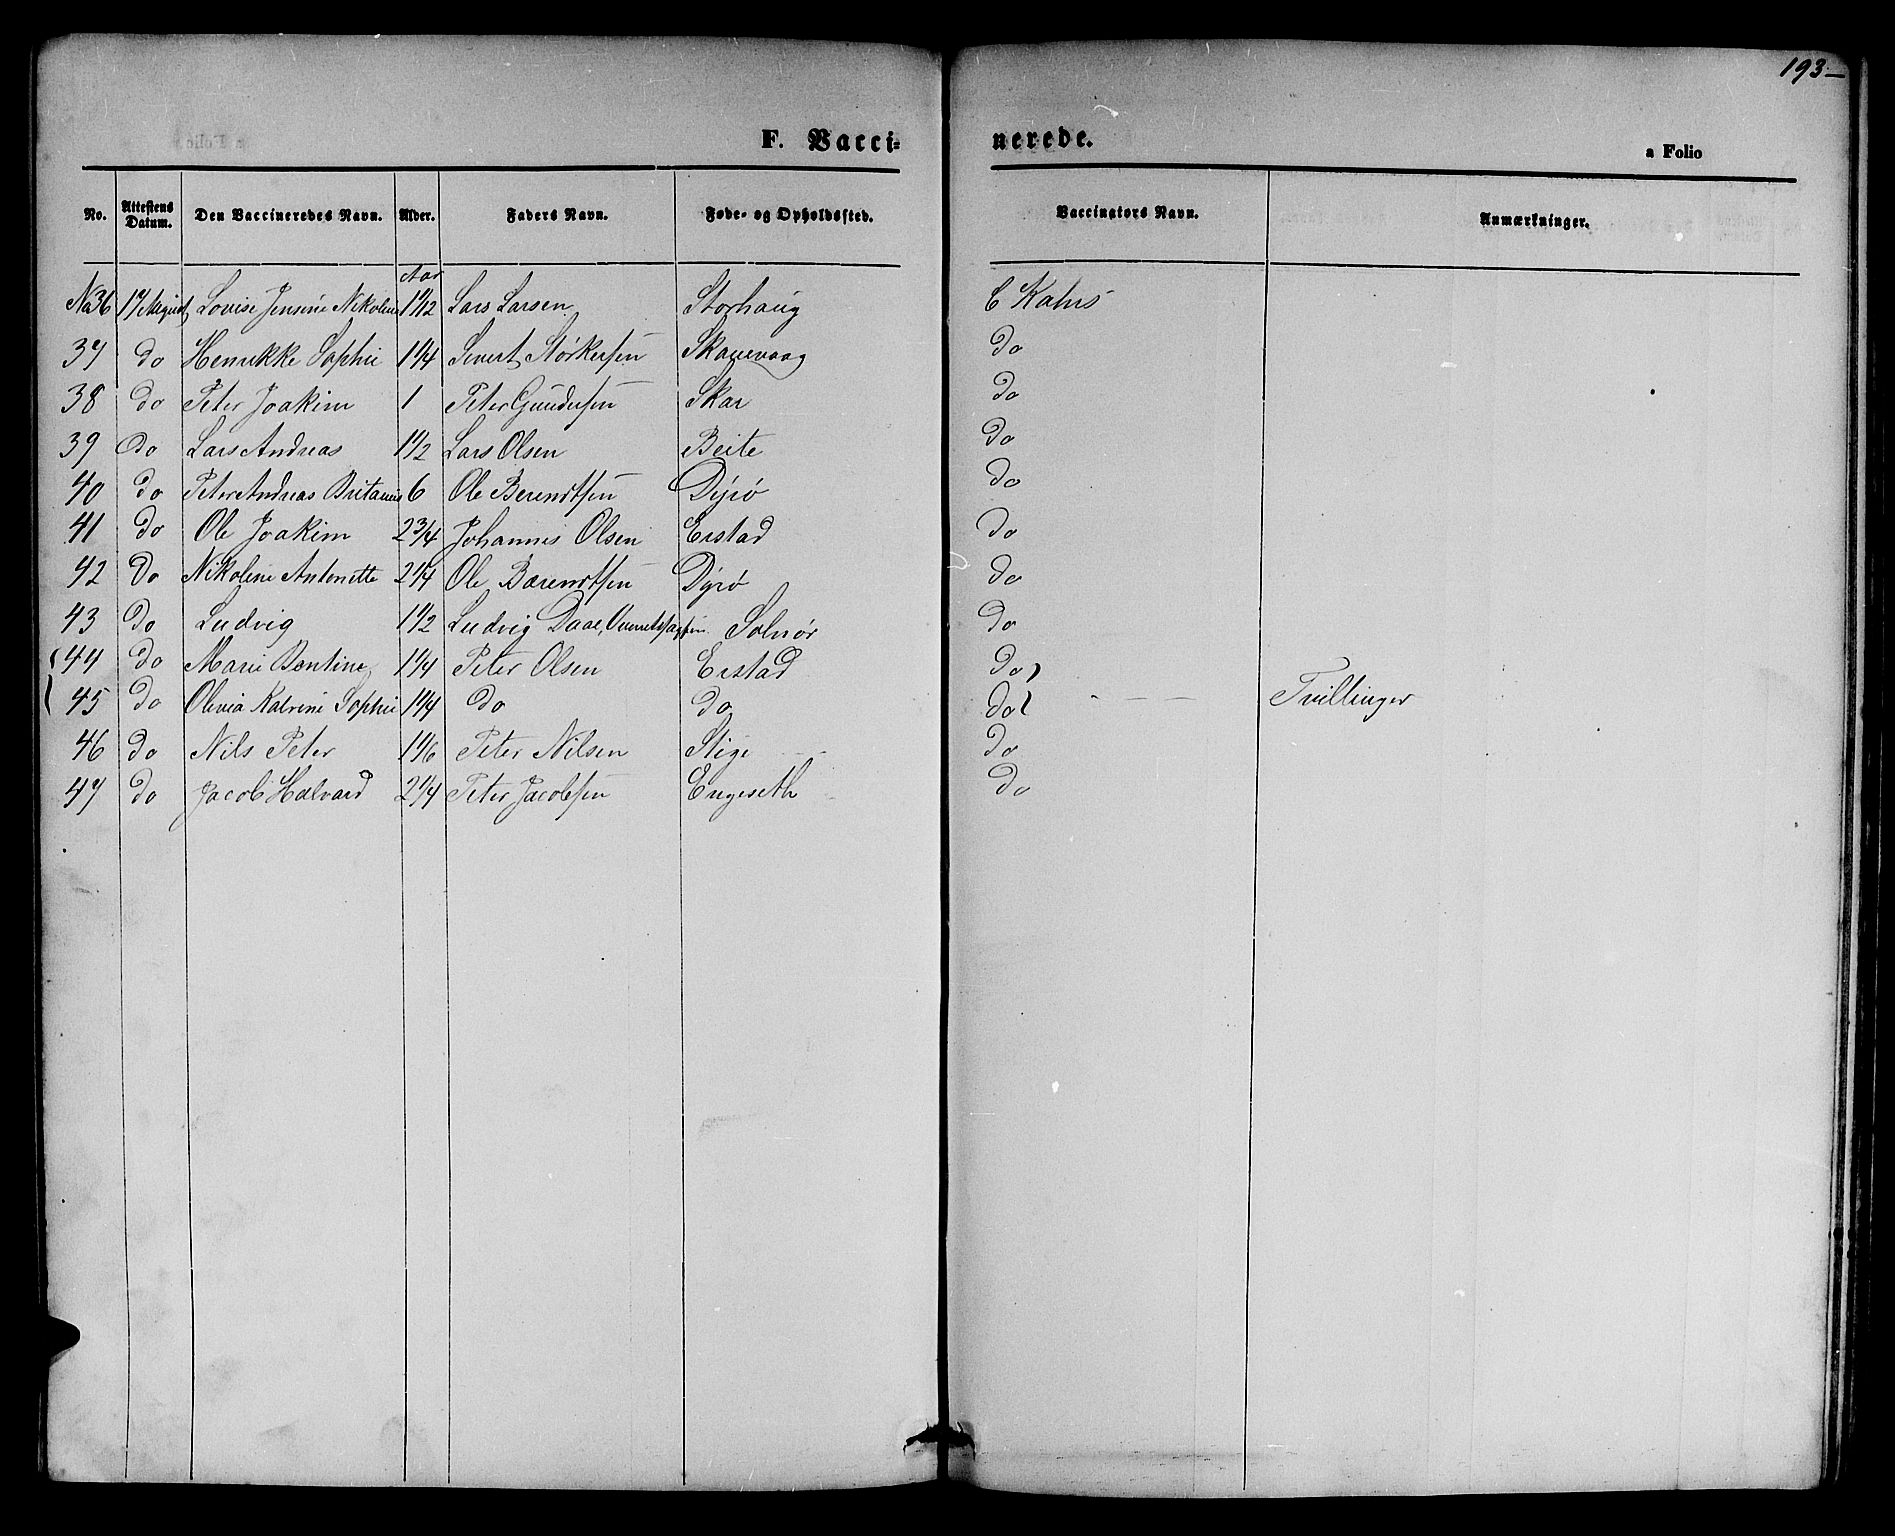 193-
F. Vaccinerede.
a Folio
No. Attestens Datum. Den Vaccineredes Navn. Alder. Faders Navn. Føde- og Opholdssted. Vaccinators Navn. Anmærkninger.
Aar
No 36 17 August Lovise Jensine Nikoline 1 1/12 Lars Larsen Storhaug C Kahrs
37 do Henrikke Sophie 1 1/4 Sivert Størkersen Skarevaag do
38 do Peter Joakim 1 Peter Gundersen Skar do
39 do Lars Andreas 1 1/2 Lars Olsen Beite do
40 do Peter Andreas Britanius 6 Ole Berendtsen Dyrø do
41 do Ole Joakim 2 3/4 Johannes Olsen Erstad do
42 do Nikoline Antonette 2 1/4 Ole Barendtsen Dyrø do
43 do Ludvig 1 1/2 Ludvig Daae, Solnør do
44 do Marie Bentine 1 1/4 Peter Olsen Erstad do
45 do Olivia Katrine Sophie 1 1/4 do do do Tvillinger
46 do Nils Peter 1 1/6 Peter Nilsen Stige do
47 do Jacob Halvard 2 1/4 Peter Jacobsen Engeseth do